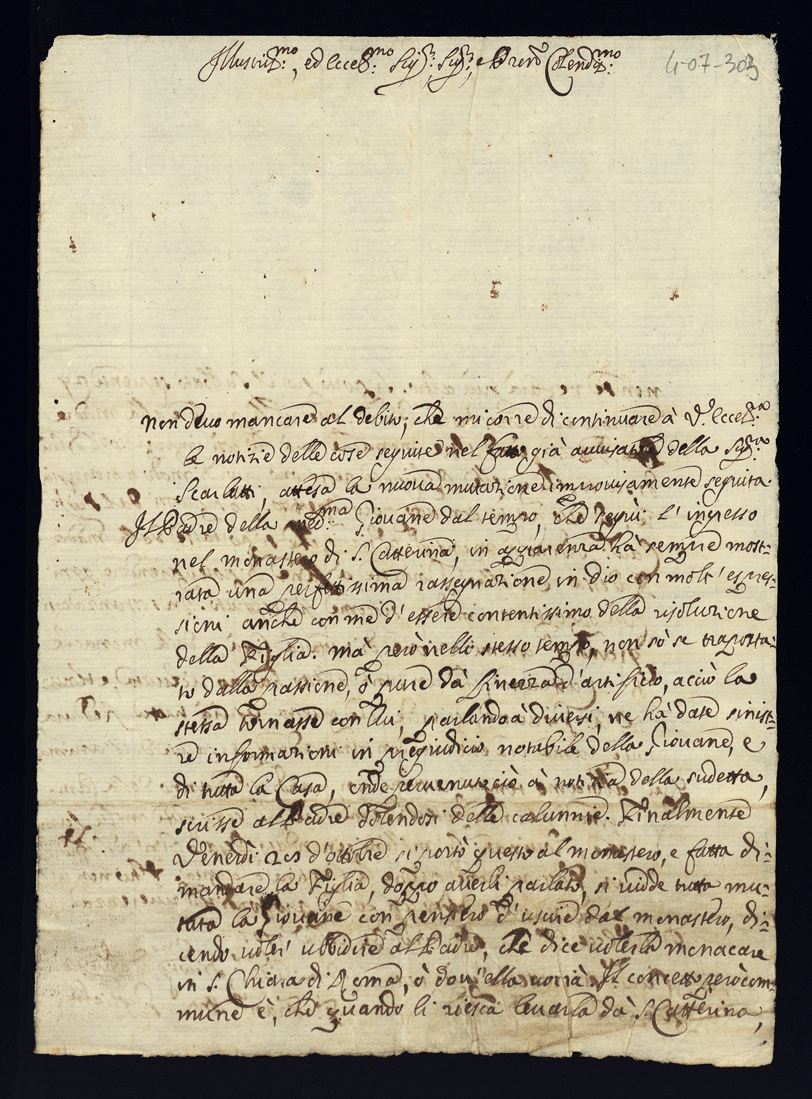 Illustriss.mo, ed Eccell.mo Sig.r, Sig.r, e Pron Colendiss.mo
4-07-303
non devo mancare al debito, che mi corre di continuare à V. Eccell.a
le notizie delle cose seguite nel fatto già avvisatole della Sig.ra
Scarlatti, attesa la nuova mutazione improvisamente seguita
Il Padre della med.ma Giovane dal tempo, che seguì l'ingresso
nel monastero di S. Catterina, in apparenza hà sempre most:
rata una perfettissima rassegnazione in Dio con molt'espres:
sioni anche con me d'essere contentissimo della risoluzione
della Figlia. mà però nello stesso tempo, non sò se trasporta:
to dalla passione, ò pure dà finezza d'artificio, acciò la
stessa tornasse con lui, parlando à diversi, ne hà date sinist:
re informazioni in pregiudicio notabile della Giovane, e
di tutta la Casa, onde pervenuto ciò à notizia della sudetta,
scrisse al Padre dolendosi delle calunnie. Finalmente
Venerdì 20 d'ottobre si portò questo al monastero, e fatta di:
mandare la Figlia, doppo averli parlato, si vidde tutta mu:
tata la Giovane con pensiero d'uscire dal monastero, di:
cendo voler ubbidire al Padre, che dice volerla monacare
in S. Chiara di Roma, ò dov'ella vorrà. Il concetto però com:
mune è, che quando li riesca levarla dà S. Catterina,